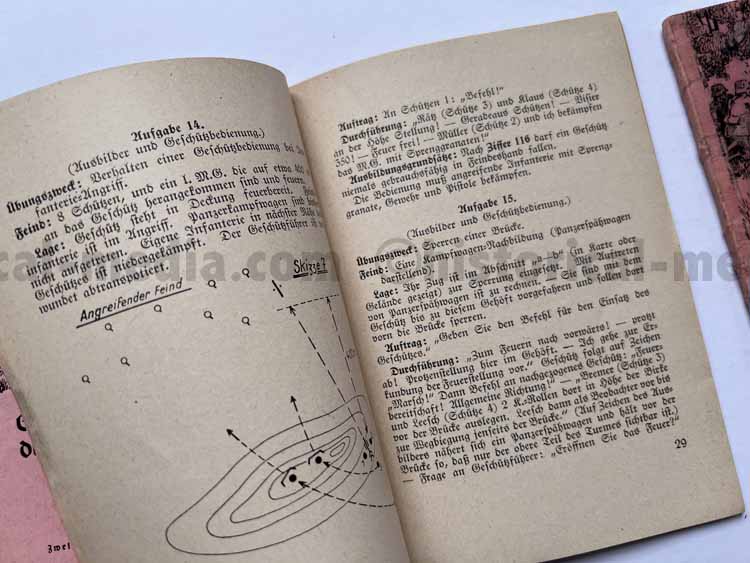 Aufgabe 14.
(Ausbilder und Geschützbedienung.)
Übungszweck: Verhalten einer Geschützbedienung bei
fanterie-Angriff.
Feind: 8 Schützen, und ein l. M.G. die auf etwa
an das Geschütz herangekommen sind und feuern.
Lage: Geschütz steht in Deckung feuerbereit.
infanterie ist im Angriff. Panzerkampfwagen sind
nicht aufgetreten. Eigene Infanterie in nächster Nähe
Geschützes ist niedergekämpft. Der Geschützführer ist
wundet abtransportiert.
Skizze
Angreifender Feind
Auftrag: An Schützen 1: „Befehl!“
Durchführung: „Räty (Schütze 3) und Klaus (Schütze 4)
an der Höhe Stellung! — Geradeaus Schützen! — Visier
350! — Feuer frei! — Müller (Schütze 2) und ich bekämpfen
das M.G. mit Sprenggranaten!“
Ausbildungsgrundsätze: Nach Ziffer 116 darf ein Geschütz
niemals gebrauchsfähig in Feindeshand fallen.
Die Bedienung muß angreifende Infanterie mit Spreng-
granate, Gewehr und Pistole bekämpfen.
Aufgabe 15.
(Ausbilder und Geschützbedienung.)
Übungszweck: Sperren einer Brücke.
Feind: Eine Kampfwagen-Nachbildung (Panzerspähwagen
darstellend).
Lage: Ihr Zug ist im Abschnitt von — bis (in Karte oder
Gelände gezeigt) zur Sperrung eingesetzt. Mit Auftreten
von Panzerspähwagen ist zu rechnen. — Sie sind mit dem
Geschütz bis zu diesem Gehöft vorgefahren und sollen dort
vorn die Brücke sperren.
Auftrag: „Geben Sie den Befehl für den Einsatz des
Geschützes.“
Durchführung: „Zum Feuern nach vorwärts! — protzt
ab! Protzenstellung hier im Gehöft. — Ich gehe zur Er-
kundung der Feuerstellung vor.“ Geschütz folgt auf Zeichen
„Marsch!“ Dann Befehl an nachgezogenes Geschütz: „Feuer-
bereitschaft! Allgemeine Richtung! — „Bremer (Schütze 3)
und Leesch (Schütze 4) 2 K.-Rollen dort in Höhe der Birke
vor der Brücke auslegen. Leesch dann als Beobachter vor bis
zur Wegbiegung jenseits der Brücke.“ (Auf Zeichen des Aus-
bilders nähert sich ein Panzerspähwagen und hält vor der
Brücke so, daß nur der obere Teil des Turmes sichtbar ist.)
— Frage an Geschützführer: „Eröffnen Sie das Feuer?“
29
Zwei